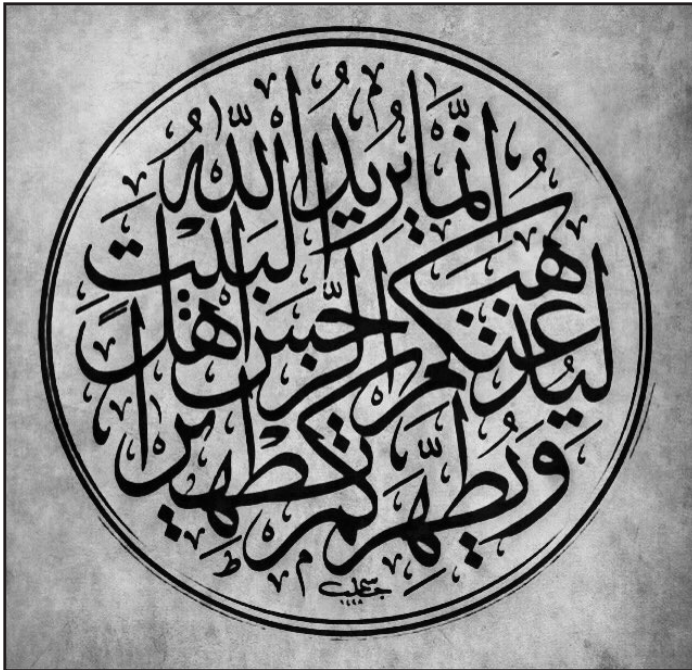 انَّمَا يُرِيدُ اللّٰهُ
لِيُذْهِبَ عَنْكُمُ الرِّجْسَ اَهْلَ الْبَيْتِ
وَيُطَهِّرَكُمْ تَطْهِيرًا